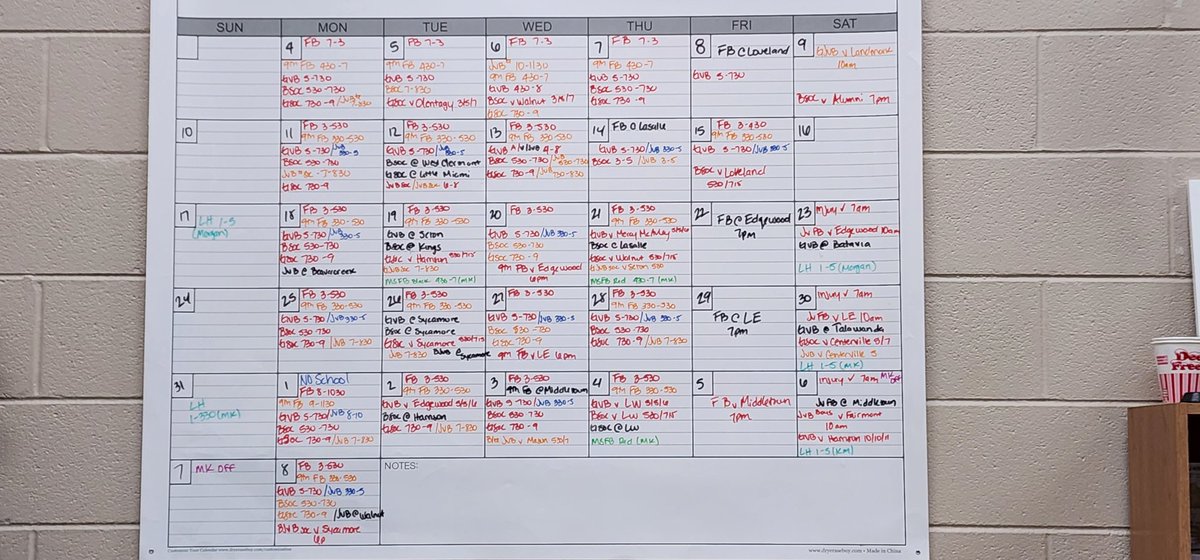 SUN MON TUE WED THU FRI SAT
4 FB 7-3
9th FB 430-7
GVB 5-730
BSOC 530-730
GSOC 730-9/JVB 7-830
5 FB 7-3
9th FB 430-7
GVB 5-730
BSOC 7-830
GSOC v Olentagy 3/5/7
6 FB 7-3
JVB 10-1130
9th FB 430-7
GVB 430-8
BSOC v Walnut 3/5/7
GSOC 730-9
7 FB 7-3
9th FB 430-7
GVB 5-730
BSOC 530-730
GSOC 730-9
8 FB @ Loveland
GVB 5-730
9 GJVB v Landmark
10am
BSOC v Alumni 7pm
10
11 FB 3-530
9th FB 330-530
GVB 5-730/JVB 330-5
BSOC 530-730
7-830
GSOC 730-9
12 FB 3-530
9th FB 330-530
GVB 5-730/JVB 330-5
BSOC @ West Clermont
GSOC @ Little Miami
6-8
13 FB 3-530
9th FB 330-530
GVB 4-8
BSOC 530-730/JVB 530-730
GSOC 730-9/JVB 730-830
14 FB @ Lasalle
GVB 5-730/JVB 330-5
BSOC 3-5/JVB 3-5
15 FB 3-430
9th FB 330-530
GVB 5-730/JVB 330-5
BSOC v Loveland
530/715
16
17 LH 1-5
(Morgan)
18 FB 3-530
9th FB 330-530
GVB 5-730/JVB 330-5
BSOC 530-730
GSOC 730-9
JVB @ Beavercreek
19 FB 3-530
9th FB 330-530
GVB @ Seton
BSOC @ Kings
GSOC v Harrison 530/715
7-830
MSFB Black 430-7 (MK)
20 FB 3-530
GVB 5-730/JVB 330-5
BSOC 530-730
GSOC 730-9
9th FB v Edgewood
6pm
21 FB 3-530
9th FB 330-530
GVB v Mercy McAuley 5/5/6
BSOC @ Lasalle
GSOC v Walnut 530/715
GJVBSOC v Seton 530
MSFB Red 430-7 (MK)
22 FB @ Edgewood
7pm
23 Injury ✓ 7am
JVFB v Edgewood 10am
GVB @ Batavia
LH 1-5 (Morgan)
24
25 FB 3-530
9th FB 330-530
GVB 5-730/JVB 330-5
BSOC 530-730
GSOC 730-9/JVB 7-830
26 FB 3-530
9th FB 330-530
GVB @ Sycamore
BSOC @ Sycamore
GSOC v Sycamore 530/715
JVB 7-830 @ Sycamore
27 FB 3-530
GVB 5-730/JVB 330-5
BSOC 530-730
GSOC 730-9
9th FB v LE 6pm
28 FB 3-530
9th FB 330-530
GVB 5-730/JVB 330-5
BSOC 530-730
GSOC 730-9/JVB 7-830
29
FB @ LE
7pm
30 Injury ✓ 7am
JVFB v LE 10am
GVB @ Talawanda
GSOC v Centerville 5/7
JVB v Centerville 5
LH 1-5 (MK)
31
LH
1-330 (MK)
1 NO School
FB 8-1030
9th FB 9-1130
GVB 5-730/JVB 8-10
BSOC 530-730
GSOC 730-9/JVB 7-830
2 FB 3-530
9th FB 330-530
GVB v Edgewood 5/5/6
BSOC @ Harrison
GSOC 730-9/JVB 7-830
3 FB 3-530
9th FB @ Middletown
GVB 5-730/JVB 330-5
BSOC 530-730
GSOC 730-9
JVB v Mason 530/7
4 FB 3-530
9th FB 330-530
GVB v LW 5/5/6
BSOC v LW 530/715
GSOC @ LW
MSFB Red (MK)
5
FB v Middletown
7pm
6 Injury ✓ 7am MK OFF
JVFB @ Middletown
JVB Boys v Fairmont
10am
GVB v Harrison 10/10/11
LH 1-5 (KM)
7 MK OFF
8 FB 3-530
9th FB 330-530
GVB 5-730/JVB 330-5
BSOC 530-730
GSOC 730-9/JVB @ Walnut
SOC v Sycamore
6p
NOTES:
www.dryerasebuy.com • Made in China
Dec
Free